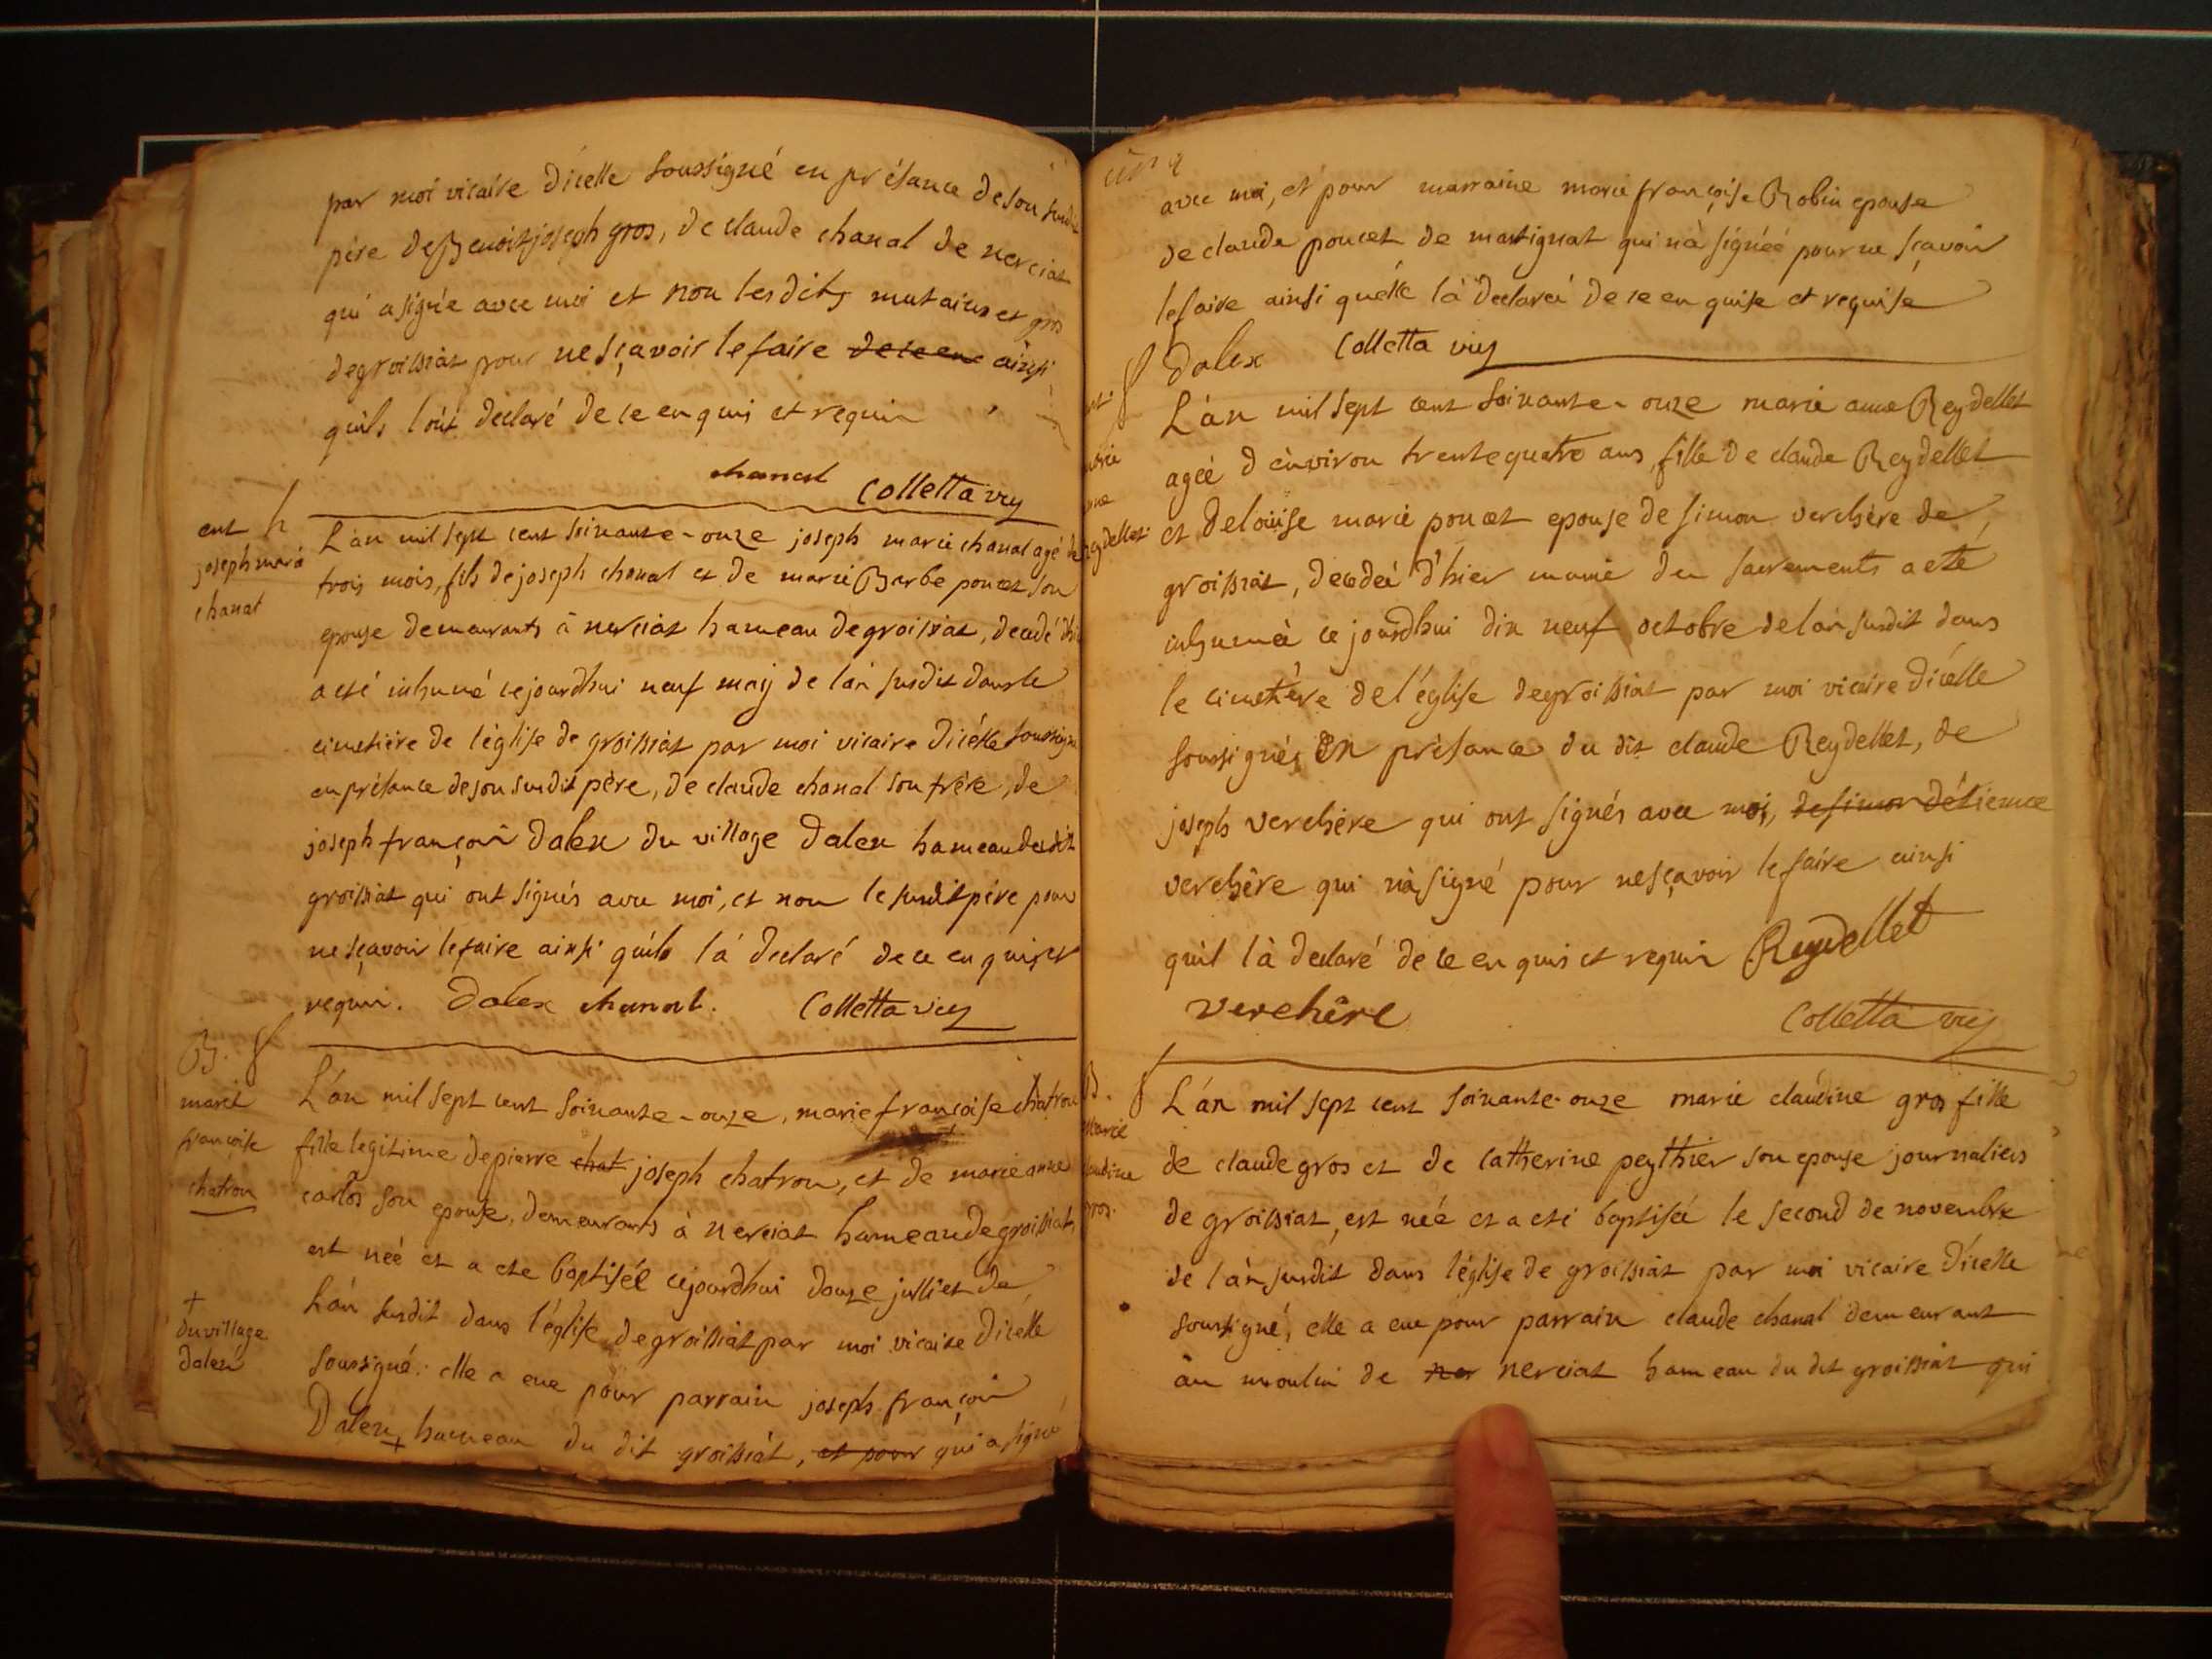 par moi vicaire d'icelle soussigné en présance de son susdit
père de Benoit joseph gros, de claude chanal de nerciat
qui a signée avec moi et non lesdits mutain et gros
de groissiat pour ne sçavoir le faire de ce en ainsi
quils l'ont declaré de ce enquis et requis
chanal Colletta vic
ent
joseph marie
chanal
L'an mil sept cent soixante-onze joseph marie chanal agé de
trois mois, fils de joseph chanal et de marie Barbe poncet son
epouse demeurants à nerciat hameau de groissiat, decedé d'hier
a eté inhumé cejourdhui neuf maÿ de l'an susdit dans le
cimetière de l'église de groissiat par moi vicaire d'icelle soussigné
en présance de son susdit père, de claude chanal son frère, de
joseph françois Dalex du village Dalex hameau dudit
groissiat qui ont signés avec moi, et non le susdit père pour
ne sçavoir le faire ainsi quils l'a declaré de ce enquis et
requis. Dalex chanal. Colletta vic
B.
marie
françoise
chatron
L'an mil sept cent soixante-onze, marie françoise chatron
fille legitime de pierre chat joseph chatron, et de marie anne
carlos son epouse, demeurants à nerciat hameau de groissiat,
est neé et a ete baptisée cejourdhui douze julliet de
l'an susdit dans l'église de groissiat par moi vicaire d'icelle
soussigné: elle a eue pour parrain joseph françois
+
du village
dalex
Dalex + hameau du dit groissiat, et pour qui a signé
avec moi, et pour marraine marie françoise Robin epouse
de claude poncet de martignat qui n'a signéé pour ne sçavoir
le faire ainsi quélle l'à declareé de ce enquise et requise
Dalex Colletta vic
Reydellet
L'an mil sept cent soixante-onze marie anne Reydellet
agéé d'environ trente quatre ans, fille de claude Reydellet
et de loüise marie poncet epouse de simon verchère de
groissiat, decedeé d'hier munie des sacrements a eté
inhumeé ce jourdhui dix neuf octobre de l'an susdit dans
le cimetière de l'église de groissiat par moi vicaire d'icelle
soussigné, en présance du dit claude Reydellet, de
joseph verchère qui ont signés avec moi, de simon d'étienne
verchère qui n'à signé pour ne sçavoir le faire ainsi
quil l'à declaré de ce enquis et requis Reydellet
verchère Colletta vic
B.
marie
claudine
gros.
L'an mil sept cent soixante-onze marie claudine gros fille
de claude gros et de catherine peythier son epouse journaliers
de groissiat, est neé et a eté baptiseé le second de novembre
de l'an susdit dans l'église de groissiat par moi vicaire d'icelle
soussigné, elle a eue pour parrain claude chanal demeurant
au moulin de ner nerciat hameau du dit groissiat qui